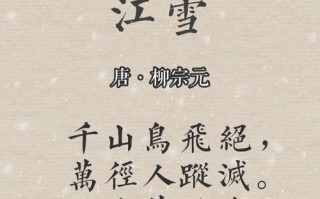 江雪
唐·柳宗元
千山鳥飛絕，
萬徑人蹤滅。